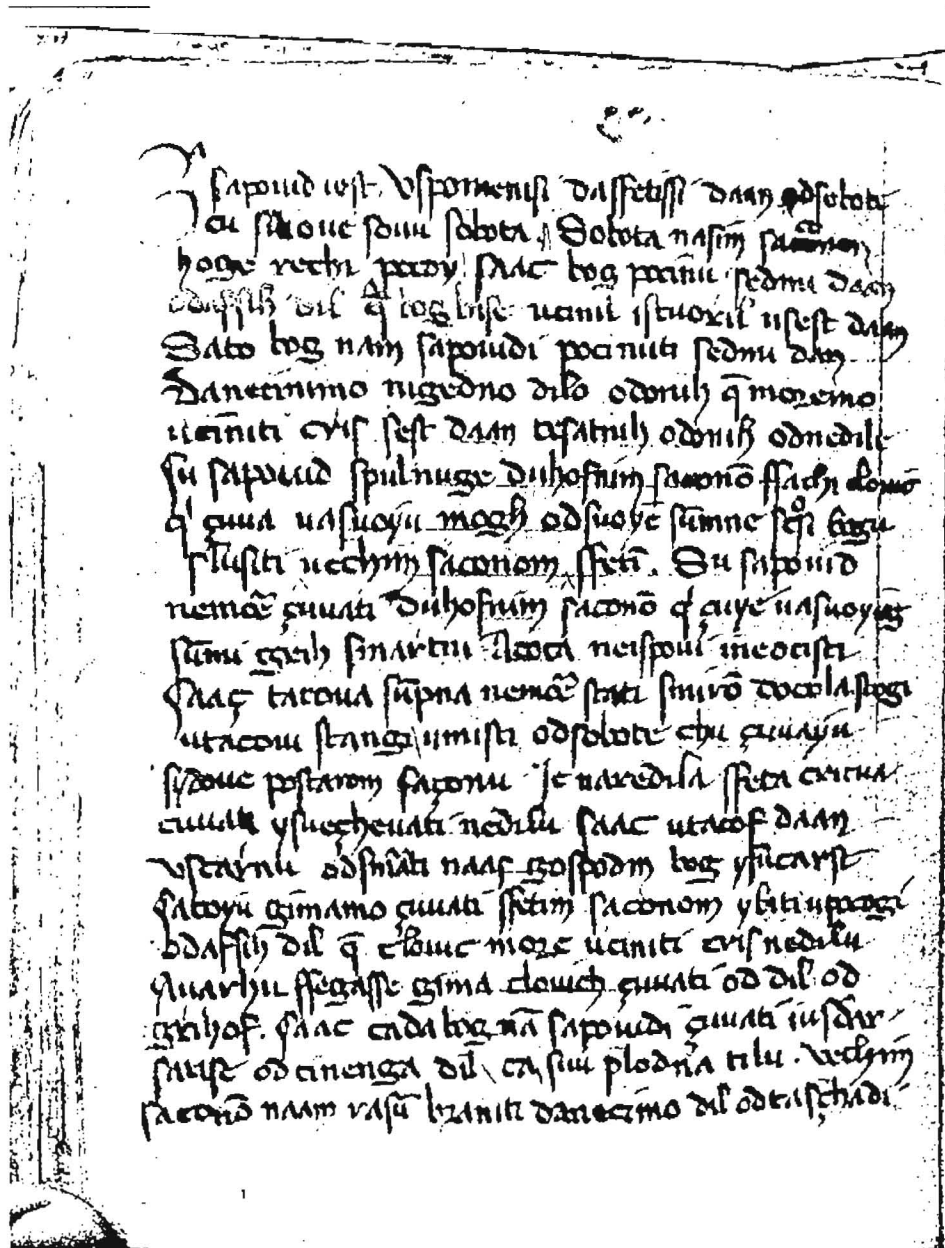 sapouid iest. Vspomenisi dassetissi daan odsobote
cu siidoue souu sobota. Sobota nasim
hoghe rechi pocoy saac bog pocinu sedmi daan
odassih dil bog bise ucinil istuoril usest daan
Sato bog nam sapouidi pocinuti sedmi dan
Danecinimo nigedno dilo odonih q̄ moremo
uciniti cris sest daan tesatnih odonih odnedile
Su sapouid spulnuge duhofnim saconō ssachi clouic
çuua uasuoyu mogh odsuoyē sūmne
slusiti uechim saconom ssetī. Su sapouid
nemoē çuuati duhofnim saconō çuye uasuoyu
sūmi ggrih smartni Acoga neispoui ineocisti
Saaç tacoua sūpna nemoē stati smirō docola stogi
utacoui stangi umisti odsobote chu çuuayu
sydoue postarom saçonu Je naredila sseta cricua
cuuati ysuechеuati nedilu saac utacof daan
vstarnu odsmārti naas gospodin bog ysūcarst
Satoyu gimamo çuuati ssetim saconom ybiti upocogi
Odassih dil q̄ clouic more uciniti cris nedilu
Auarhu ssegasse gima clouich çuuati od dil od
grihof. Saac cada bog nā sapouidi çuuati iusdar
sarise odcinenga dil ca siu plodna tilu. Vechim
saconō naam rasū braniti danecimo dil odtaschadi